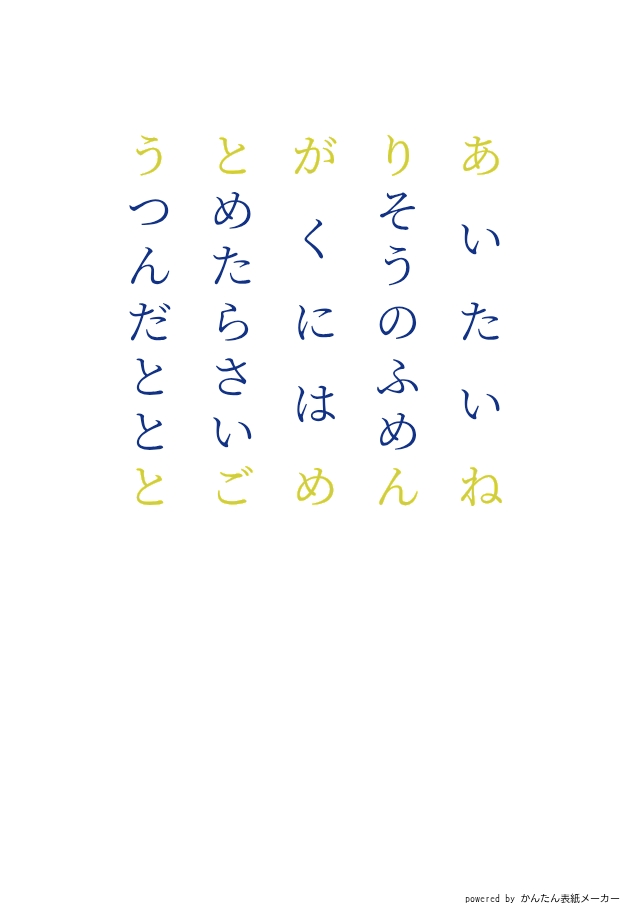 あいたいね
りそうのふめん
がくにはめ
とめたらさいご
うつんだととと
powered by かんたん表紙メーカー